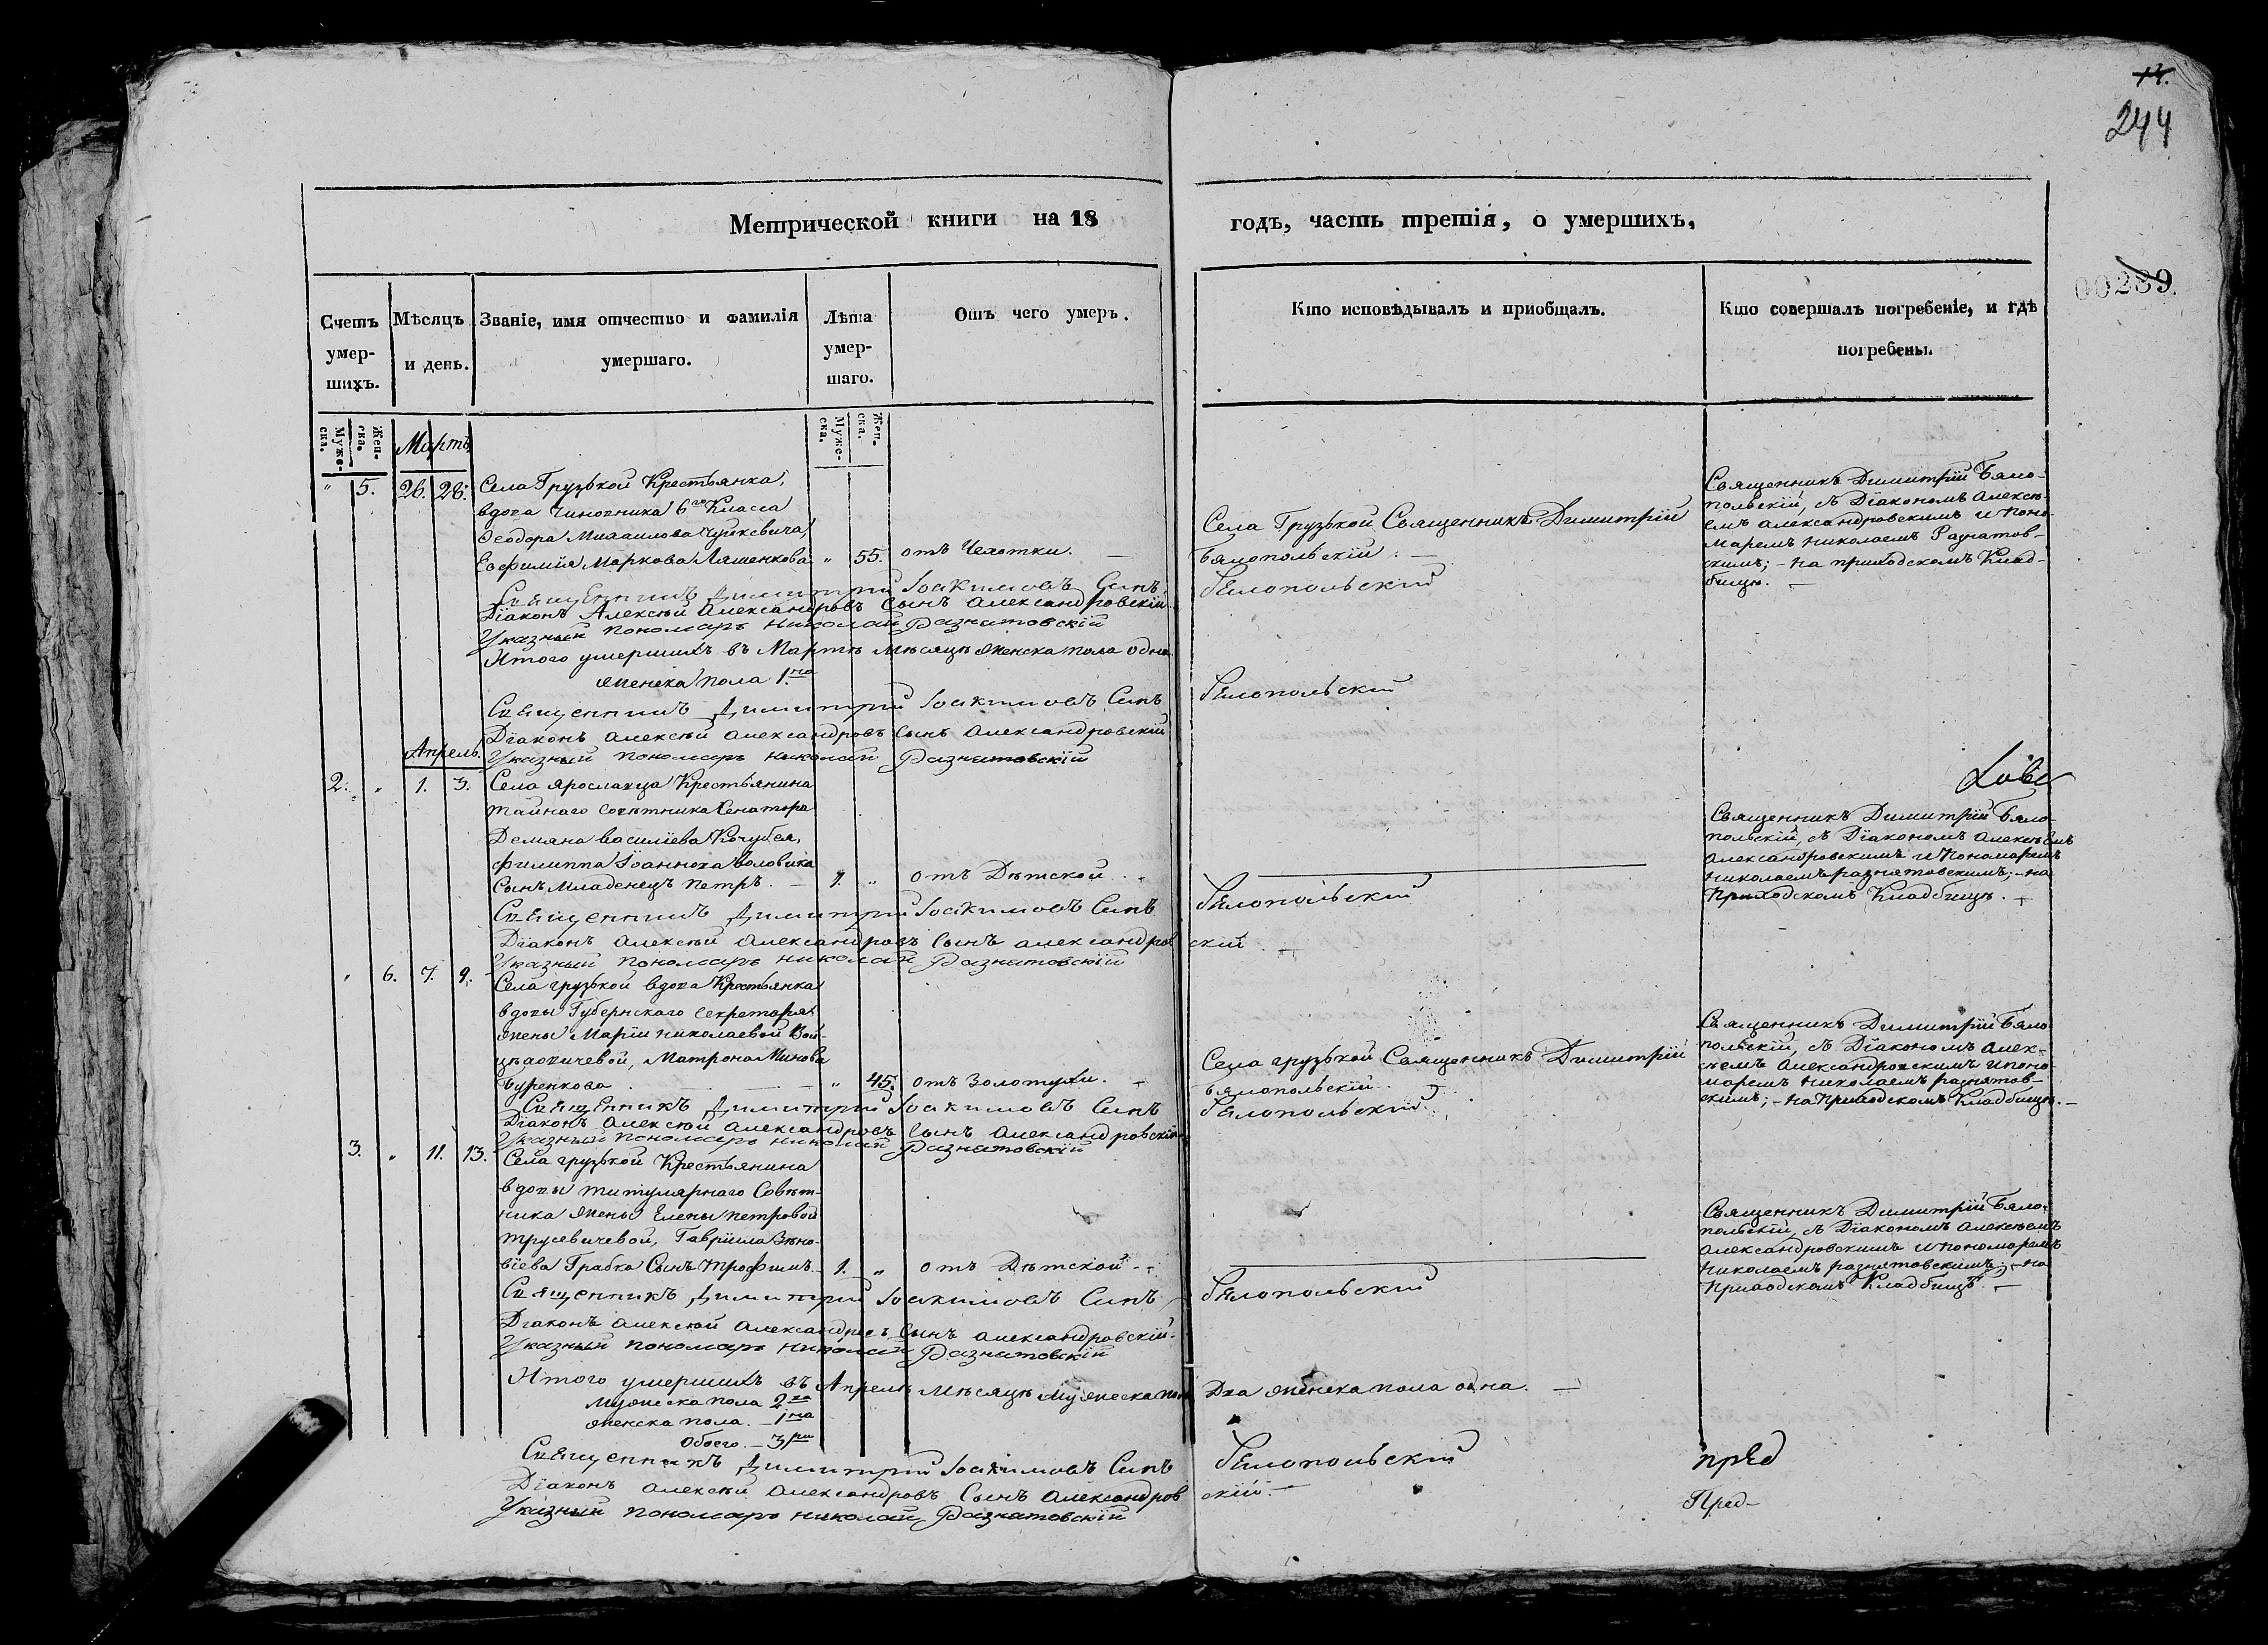 14.
244
00239
Метрической книги на 18
годъ, часть третія, о умершихъ,
Счетъ умер-шихъ.
Мѣсяцъ и день.
Званіе, имя отчество и фамилія умершаго.
Лѣта умер-шаго.
Отъ чего умеръ.
Кто исповѣдывалъ и приобщалъ.
Кто совершалъ погребеніе, и гдѣ погребены.
Муже-ска.
Жен-ска.
Муже-ска.
Жен-ска.
Мартъ
" 5. 26. 28. Села Грузькой Крестьянка,
вдова Чиновника 6го Класса
Ѳеодора Михаилова Чуйкевича,
Евфимія Маркова Ляшенкова " 55. отъ Чахотки. —
Села Грузькой Священникъ Димитрій
Бялопольскій. —
Священникъ Димитрій Бяло-
польскій, съ Діакономъ Алексѣ-
емъ Александровскимъ и Поно-
маремъ Николаемъ Разнатов-
скимъ; – на приходскомъ Клад-
бищѣ. —
Священникъ Димитрій Іоакимовъ Сынъ Бялопольскій
Діаконъ Алексѣй Александровъ Сынъ Александровскій
Указный Пономарь Николай Разнатовскій
Итого умершихъ въ Мартѣ Мѣсяцѣ женска пола одна
женска пола 1.на
Священникъ Димитрій Іоакимовъ Сынъ Бялопольскій
Діаконъ Алексѣй Александровъ Сынъ Александровскій
Указный Пономарь Николай Разнатовскій
Апрель.
2. " 1. 3. Села Ярославца Крестьянина
тайнаго Совѣтника Сенатора
Демяна Василіева Кочубея,
Филиппа Іоаннова Воловика
Сынъ Младенецъ Петръ. — 1. " отъ Дѣтской.
Священникъ Димитрій Бяло-
польскій, съ Діакономъ Алексѣемъ
Александровскимъ и Пономаремъ
Николаемъ Разнатовскимъ; – на
Приходскомъ Кладбищѣ.
Священникъ Димитрій Іоакимовъ Сынъ Бялопольскій
Діаконъ Алексѣй Александровъ Сынъ Александровскій
Указный Пономарь Николай Разнатовскій
" 6. 7. 9. Села Грузькой вдова Крестьянка
вдовы Губернскаго Секретаря
жены Маріи Николаевой Вой-
Матрона Минова
Буренкова — " 45. отъ Золотухи.
Села Грузькой Священникъ Димитрій
Бялопольскій.
Священникъ Димитрій Бяло-
польскій, съ Діакономъ Алек-
сѣемъ Александровскимъ и Поно-
маремъ Николаемъ Разнатов-
скимъ; – на Приходскомъ Кладбищѣ. —
Священникъ Димитрій Іоакимовъ Сынъ Бялопольскій
Діаконъ Алексѣй Александровъ Сынъ Александровскій
Указный Пономарь Николай Разнатовскій
3. " 11. 13. Села Грузькой Крестьянина
вдовы титулярнаго Совѣт-
ника жены Елены Петровой
Трусевичевой, Гавріила Зѣно-
віева Грабка Сынъ Трофимъ. 1. " отъ Дѣтской.
Священникъ Димитрій Бяло-
польскій, съ Діакономъ Алексѣемъ
Александровскимъ и Пономаремъ
Николаемъ Разнатовскимъ; – на
Приходскомъ Кладбищѣ. —
Священникъ Димитрій Іоакимовъ Сынъ Бялопольскій
Діаконъ Алексѣй Александровъ Сынъ Александровскій.
Указный Пономарь Николай Разнатовскій
Итого умершихъ въ Апрелѣ Мѣсяцѣ Мужеска пола Два женска пола одна. —
Мужеска пола 2ва
женска пола. – 1на
Обоего. – 3ри
Священникъ Димитрій Іоакимовъ Сынъ Бялопольскій
Діаконъ Алексѣй Александровъ Сынъ Александровскій. —
Указный Пономарь Николай Разнатовскій
пред
Пред-